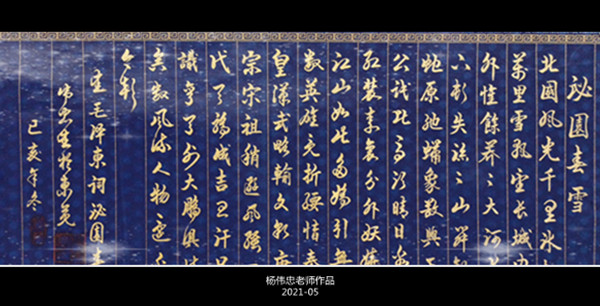 沁園春雪
北國風光千里冰
萬里雪飄望長城内
外惟餘莽〻大河
下頓失滔〻山舞銀
蛇原馳蠟象欲與天
公試比高須晴日看
紅裝素裹分外妖嬈
江山如此多嬌引無
數英雄竞折腰惜秦
皇漢武略輸文彩唐
宗宋祖稍遜風騷
代天驕成吉思汗只
識彎弓射大鵰俱往
矣數風流人物還看
今朝
毛澤東詞沁園春
偉忠書於東莞
己亥年冬
杨伟忠老师作品
2021-05